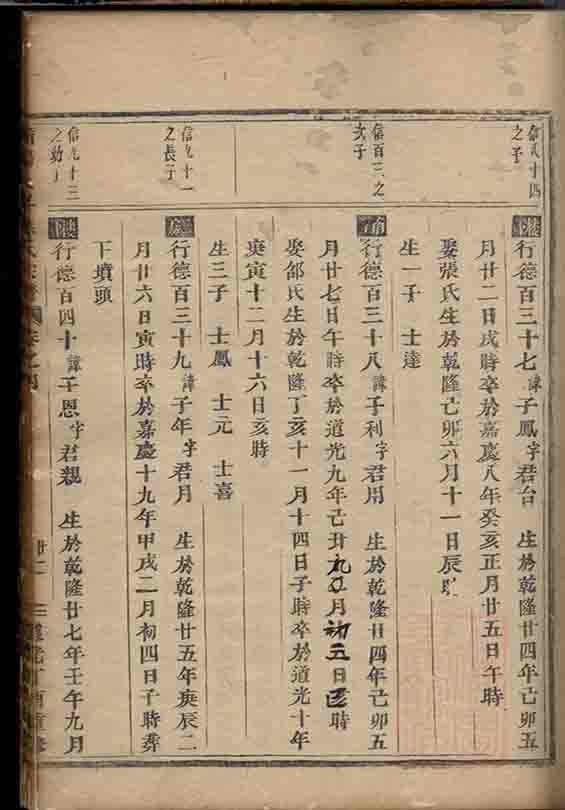 信貳十四
之子
行德百三十七諱子鳳字君台 生於乾隆廿四年己卯五
月廿二日戌時卒於嘉慶八年癸亥正月廿五日午時
娶張氏生於乾隆己卯六月十一日辰時
生一子 士達
信百三之
次子
行德百三十八諱子利字君用 生於乾隆廿四年己卯五
月廿七日午時卒於道光九年己丑九月初五日時
娶邰氏生於乾隆丁亥十一月十四日子時卒於道光十年
庚寅十二月十六日亥時
生三子 士鳳 士元 士喜
信九十一
之長子
行德百三十九諱子年字君月 生於乾隆廿五年庚辰二
月廿六日寅時卒於嘉慶十九年甲戌二月初四日子時葬
下墳頭
信九十三
之幼子
行德百四十諱子恩字君親 生於乾隆廿七年壬午九月
廿二